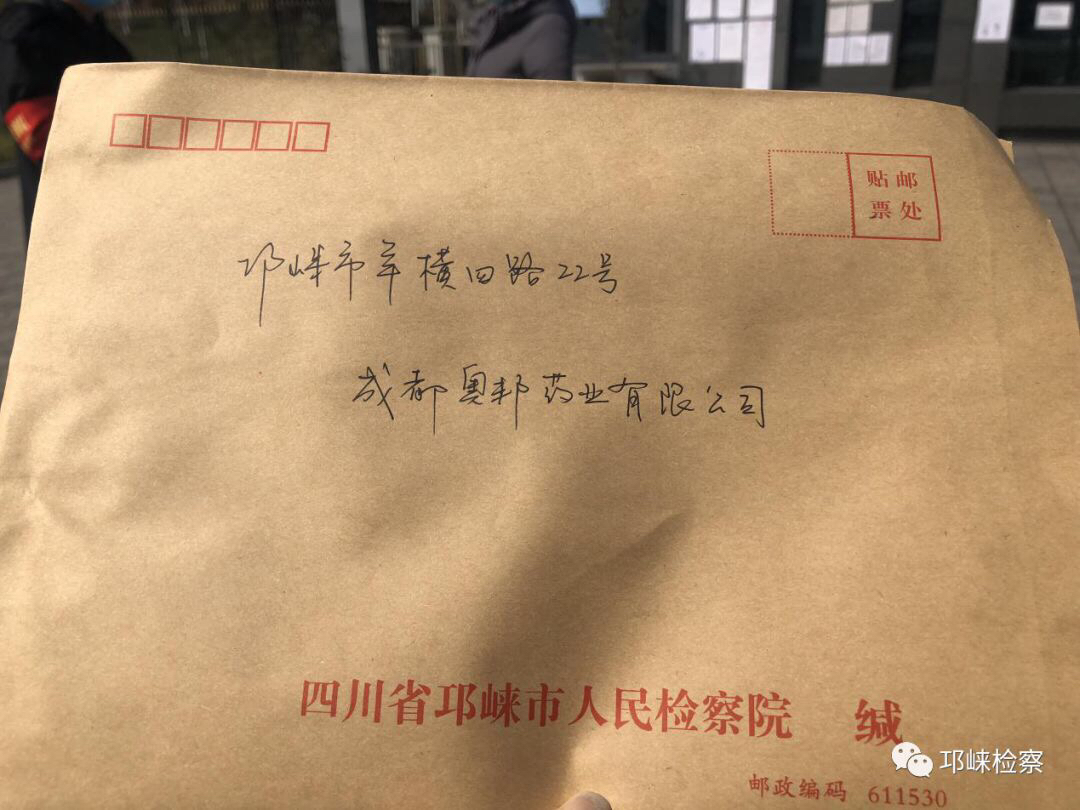 贴邮
票处
邛崃市羊横四路22号
成都奥邦药业有限公司
四川省邛崃市人民检察院 缄
邮政编码 611530
邛崃检察